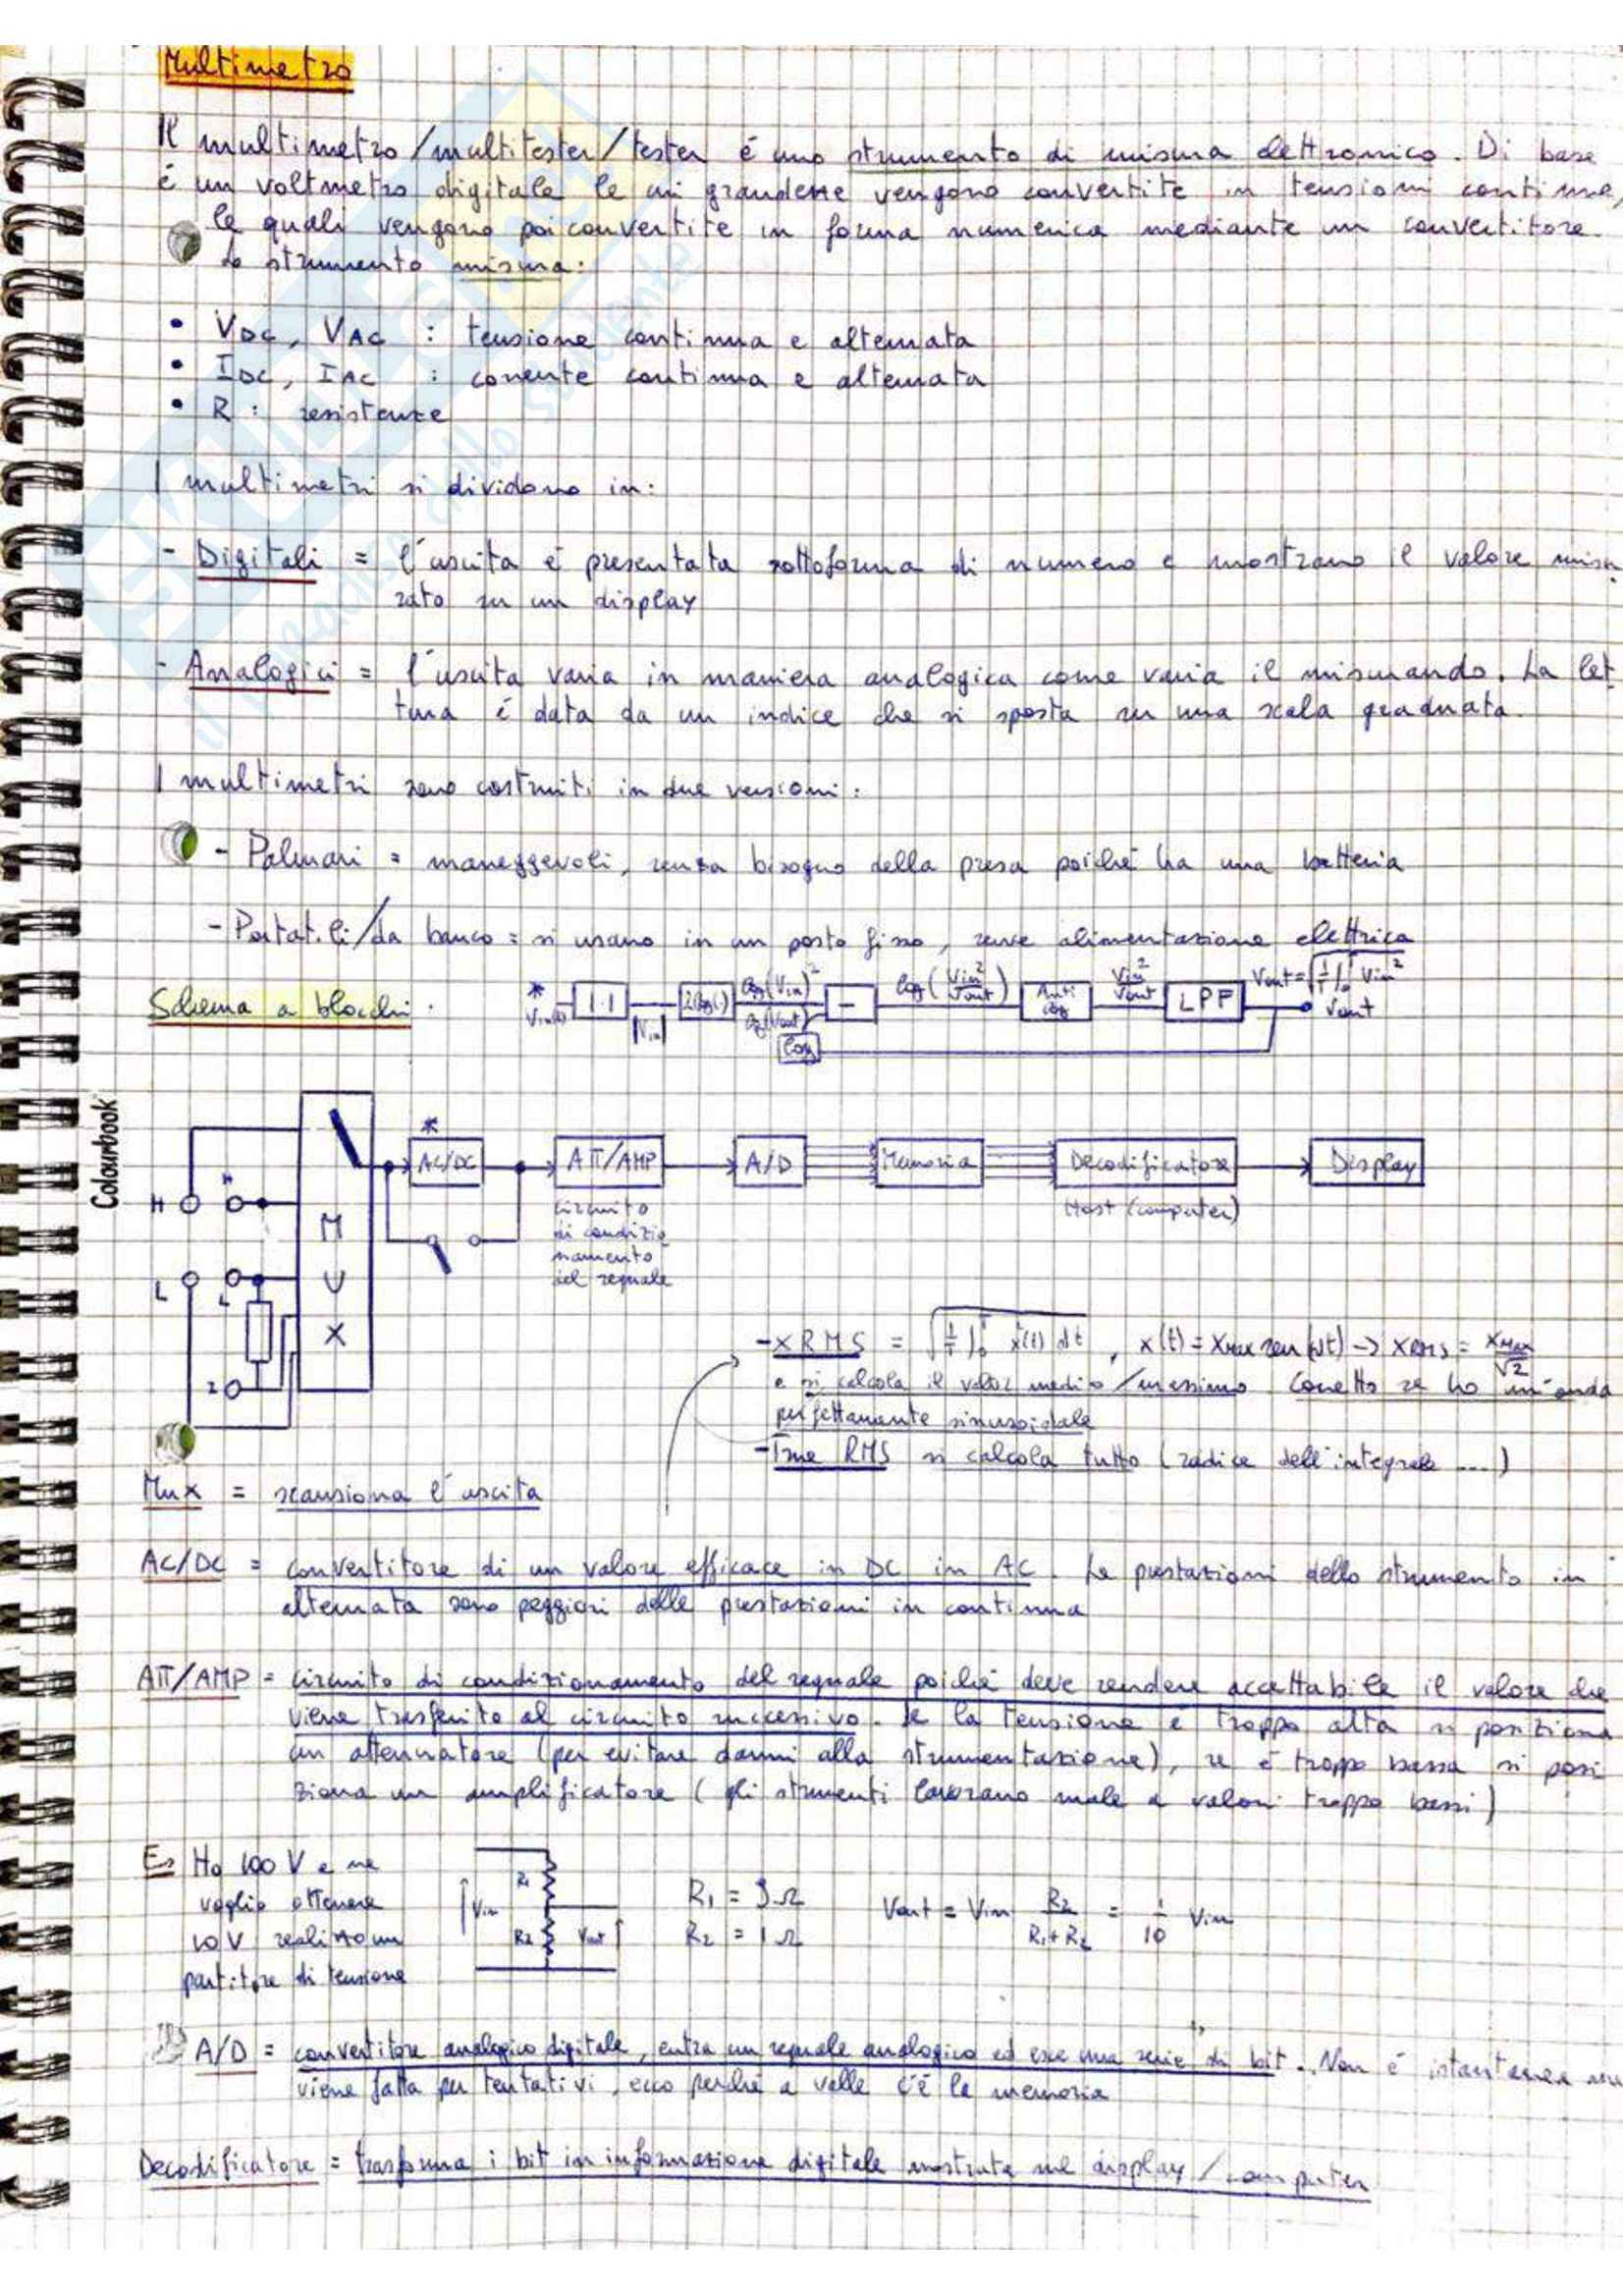 Multimetro
Il multimetro/multitester/tester è uno strumento di misura elettronico. Di base
è un voltmetro digitale le cui grandezze vengono convertite in tensioni continue,
le quali vengono poi convertite in forma numerica mediante un convertitore.
Lo strumento misura:
• VDC, VAC : tensione continua e alternata
• IDC, IAC : corrente continua e alternata
• R : resistenze
I multimetri si dividono in:
- Digitali = l'uscita è presentata sottoforma di numero e mostrano il valore misu
rato su un display
- Analogici = l'uscita varia in maniera analogica come varia il misurando. La let
tura è data da un indice che si sposta su una scala graduata.
I multimetri sono costruiti in due versioni:
- Palmari = maneggevoli, senza bisogno della presa poiché ha una batteria
- Portatili/da banco = si usano in un posto fisso, serve alimentazione elettrica
Schema a blocchi:
* Vin(t) |·| |Vin| 2log(·) log(Vin)² log(Vout) - log(Vin²/Vout) Anti log Vin²/Vout LPF Vout=√(1/T ∫₀ᵀ Vin²) Vout
log
Colourbook
*
AC/DC ATT/AMP A/D Memoria Decodificatore Display
H H M U X
L L
I
circuito
di condizio
namento
del segnale
Host (computer)
- XRMS = √(1/T ∫₀ᵀ x²(t) dt) , x(t) = XMAX sen(ωt) -> XRMS = XMAX/√2
e si calcola il valor medio/massimo corretto se ho un'onda
perfettamente sinusoidale
- True RMS si calcola tutto (radice dell'integrale ...)
Mux = scansiona l'uscita
AC/DC = convertitore di un valore efficace in DC in AC. Le prestazioni dello strumento in
alternata sono peggiori delle prestazioni in continua
ATT/AMP = circuito di condizionamento del segnale poiché deve rendere accettabile il valore che
viene trasferito al circuito successivo. Se la tensione è troppo alta si posiziona
un attenuatore (per evitare danni alla strumentazione), se è troppo bassa si posi
ziona un amplificatore (gli strumenti lavorano male a valori troppo bassi)
Es Ho 100 V e ne
voglio ottenere
10 V realizzo un
partitore di tensione
Vin R1 R2 Vout
R1 = 9 Ω
R2 = 1 Ω
Vout = Vin R2/(R1+R2) = 1/10 Vin
A/D = convertitore analogico digitale, entra un segnale analogico ed esce una serie di bit. Non è istantanea ma
viene fatta per tentativi, ecco perché a valle c'è la memoria
Decodificatore = trasforma i bit in informazione digitale mostrata sul display/computer